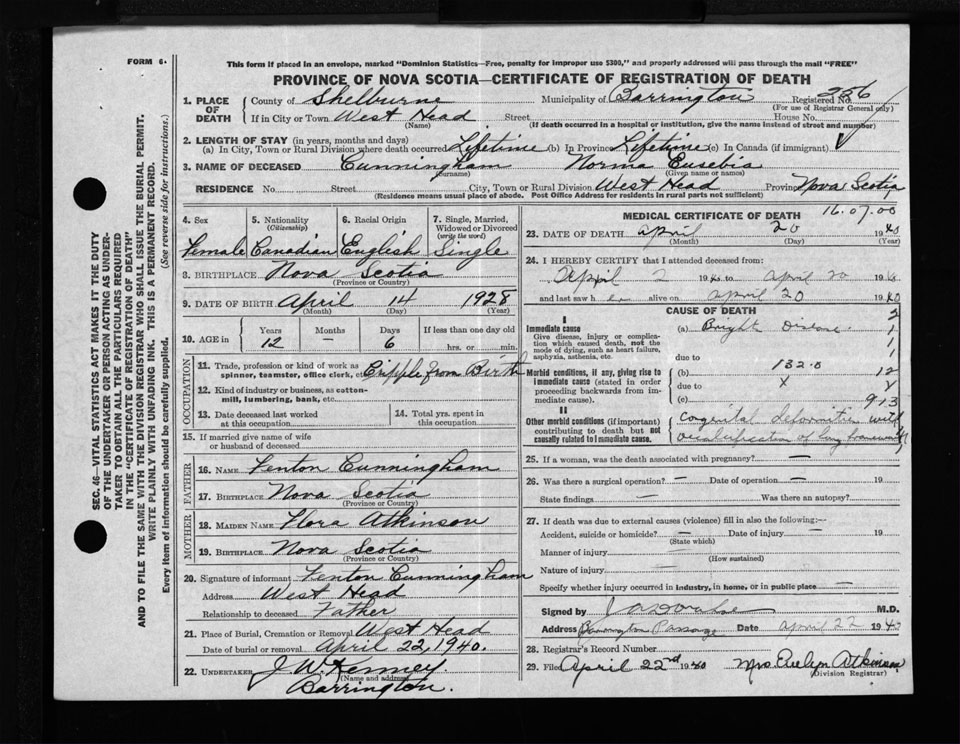 FORM 6.
This form if placed in an envelope, marked "Dominion Statistics—Free, penalty for improper use $300," and properly addressed will pass through the mail "FREE"
PROVINCE OF NOVA SCOTIA—CERTIFICATE OF REGISTRATION OF DEATH
1. PLACE OF DEATH
County of Shelburne Municipality of Barrington Registered No. 256
(For use of Registrar General only)
If in City or Town West Head Street House No.
(Name) (If death occurred in a hospital or institution, give the name instead of street and number)
2. LENGTH OF STAY (in years, months and days)
(a) In City, Town or Rural Division where death occurred Lifetime (b) In Province Lifetime (c) In Canada (if immigrant)
3. NAME OF DECEASED Cunningham Norma Eusebia
(Surname) (Given name or names)
RESIDENCE No. Street City, Town or Rural Division West Head Province Nova Scotia
(Residence means usual place of abode. Post Office Address for residents in rural parts not sufficient)
4. Sex 5. Nationality (Citizenship) 6. Racial Origin 7. Single, Married, Widowed or Divorced (write the word)
Female Canadian English Single
8. BIRTHPLACE Nova Scotia
(Province or Country)
9. DATE OF BIRTH April 14 1928
(Month) (Day) (Year)
10. AGE in Years Months Days If less than one day old
12 – 6 hrs. or min.
OCCUPATION
11. Trade, profession or kind of work as spinner, teamster, office clerk, etc. Cripple from Birth
12. Kind of industry or business, as cotton-mill, lumbering, bank, etc.
13. Date deceased last worked at this occupation
14. Total yrs. spent in this occupation
15. If married give name of wife or husband of deceased
FATHER
16. NAME Fenton Cunningham
17. BIRTHPLACE Nova Scotia
(Province or Country)
MOTHER
18. MAIDEN NAME Flora Atkinson
19. BIRTHPLACE Nova Scotia
(Province or Country)
20. Signature of informant Fenton Cunningham
Address West Head
Relationship to deceased Father
21. Place of Burial, Cremation or Removal West Head
Date of burial or removal April 22, 1940.
22. UNDERTAKER J. W. Kenney
(Name and address)
Barrington.
MEDICAL CERTIFICATE OF DEATH 16.07.00
23. DATE OF DEATH April 20 1940
(Month) (Day) (Year)
24. I HEREBY CERTIFY that I attended deceased from:
April 2 1940 to April 20 1940
and last saw her alive on April 20 1940
CAUSE OF DEATH
I
Immediate cause (a) Bright Disease
Give disease, injury or complication which caused death, not the mode of dying, such as heart failure, asphyxia, asthenia, etc.
due to
132.0
Morbid conditions, if any, giving rise to immediate cause (stated in order proceeding backwards from immediate cause). (b)
due to x
(c) 913
II
Other morbid conditions (if important) contributing to death but not causally related to immediate cause.
Congenital deformities with
of bony framework
25. If a woman, was the death associated with pregnancy? —
26. Was there a surgical operation? — Date of operation — 19
State findings — Was there an autopsy?
27. If death was due to external causes (violence) fill in also the following:—
Accident, suicide or homicide? — Date of injury — 19
(State which)
Manner of injury —
(How sustained)
Nature of injury —
Specify whether injury occurred in industry, in home, or in public place —
Signed by M.D.
Address Barrington Passage Date April 22 1940
28. Registrar's Record Number
29. Filed April 22nd 1940 Mrs. Evelyn Atkinson
(Division Registrar)
SEC. 46—VITAL STATISTICS ACT MAKES IT THE DUTY
OF THE UNDERTAKER OR PERSON ACTING AS UNDER-
TAKER TO OBTAIN ALL THE PARTICULARS REQUIRED
IN THE "CERTIFICATE OF REGISTRATION OF DEATH"
AND TO FILE THE SAME WITH THE DIVISION REGISTRAR WHO SHALL ISSUE THE BURIAL PERMIT.
WRITE PLAINLY WITH UNFADING INK. THIS IS A PERMANENT RECORD.
Every item of information should be carefully supplied. (See reverse side for instructions.)